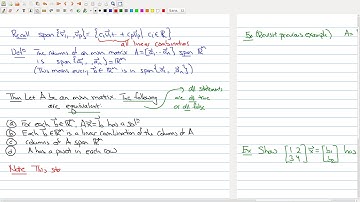 Recall span {v₁, ... vₚ} = {c₁v₁ + ... + cₚvₚ | cᵢ ∈ ℝ}
all linear combinations
Defⁿ The columns of an mxn matrix A = [a₁ ... aₙ] span ℝᵐ
if span {a₁, ... aₙ} = ℝᵐ
(This means every b ∈ ℝᵐ is in span {a₁, ... aₙ})
Thm Let A be an mxn matrix. The following
are equivalent:
all statements
are all true
or all false
ⓐ For each b ∈ ℝᵐ, Ax = b has a solⁿ
ⓑ Each b ∈ ℝᵐ is a linear combination of the columns of A
ⓒ columns of A span ℝᵐ
ⓓ A has a pivot in each row
Note: This
Ex (Revisit previous example) A =
Ex Show [1 2; 3 4] x = [b₁; b₂]